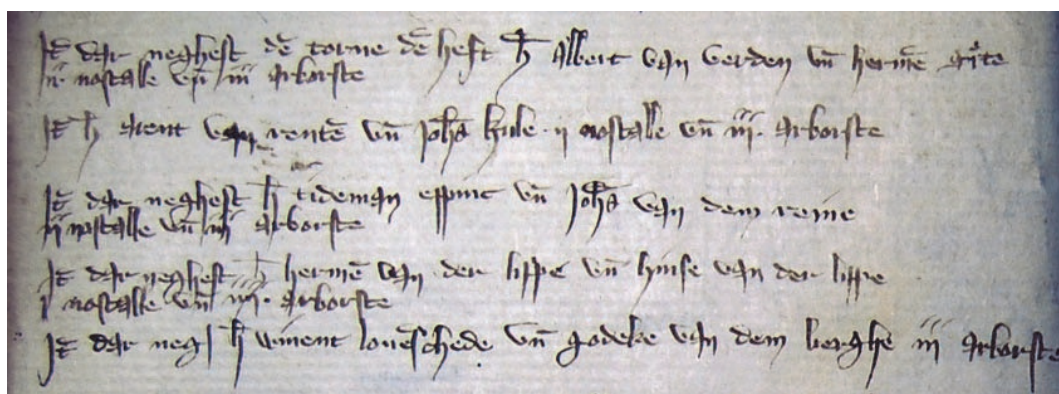 It dar neghest dē torne dē heft h̄ Albert van Verden vn̄ hermē
ii nostalle vn̄ iii arborste
It h̄ arent van rentē vn̄ Johā kule · ii nostalle vn̄ iii · arborste
It dar neghest h̄ tideman eppinc vn̄ Johā van dem reine
ii nostalle vn̄ iii arborste
It dar neghest h̄ hermē van der lippe vn̄ hinse van der lippe
i nostalle vn̄ iii · arborste
It dar neg h̄ winent louēschede vn̄ godeke van dem berghe iii arborste